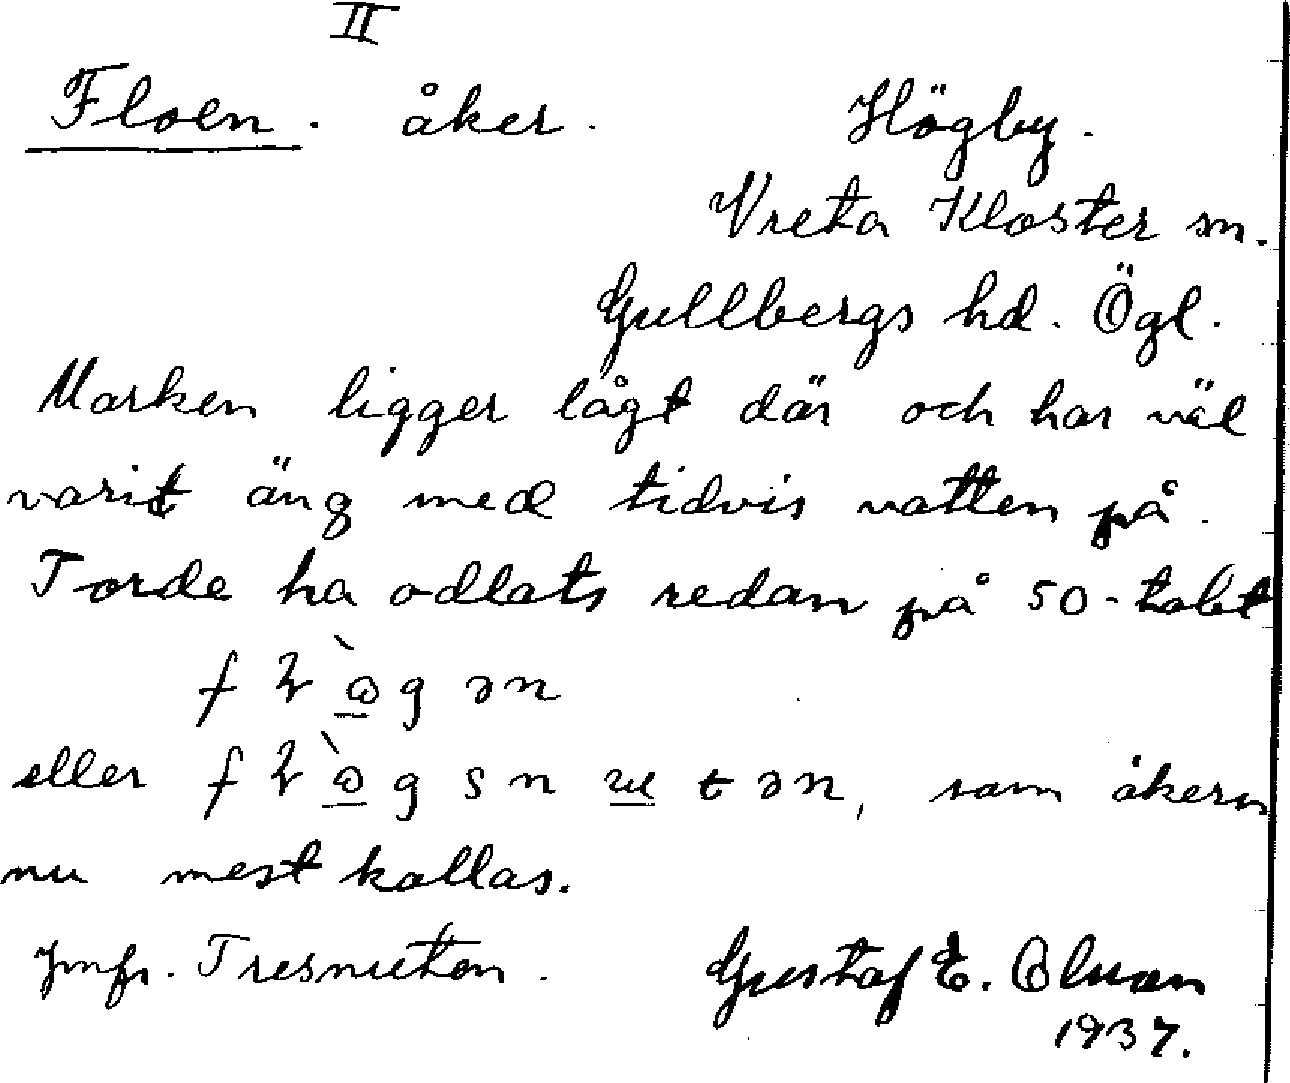 II
Floen. åker. Högby.
Vreta Kloster sn.
Gullbergs hd. Ögl.
Marken ligger lågt där och har väl
varit äng med tidvis vatten på.
Torde ha odlats redan på 50-talet
eller
, som åkern
nu mest kallas.
Jmfr. Tresnuten. Gustaf E. Olsson
1937.